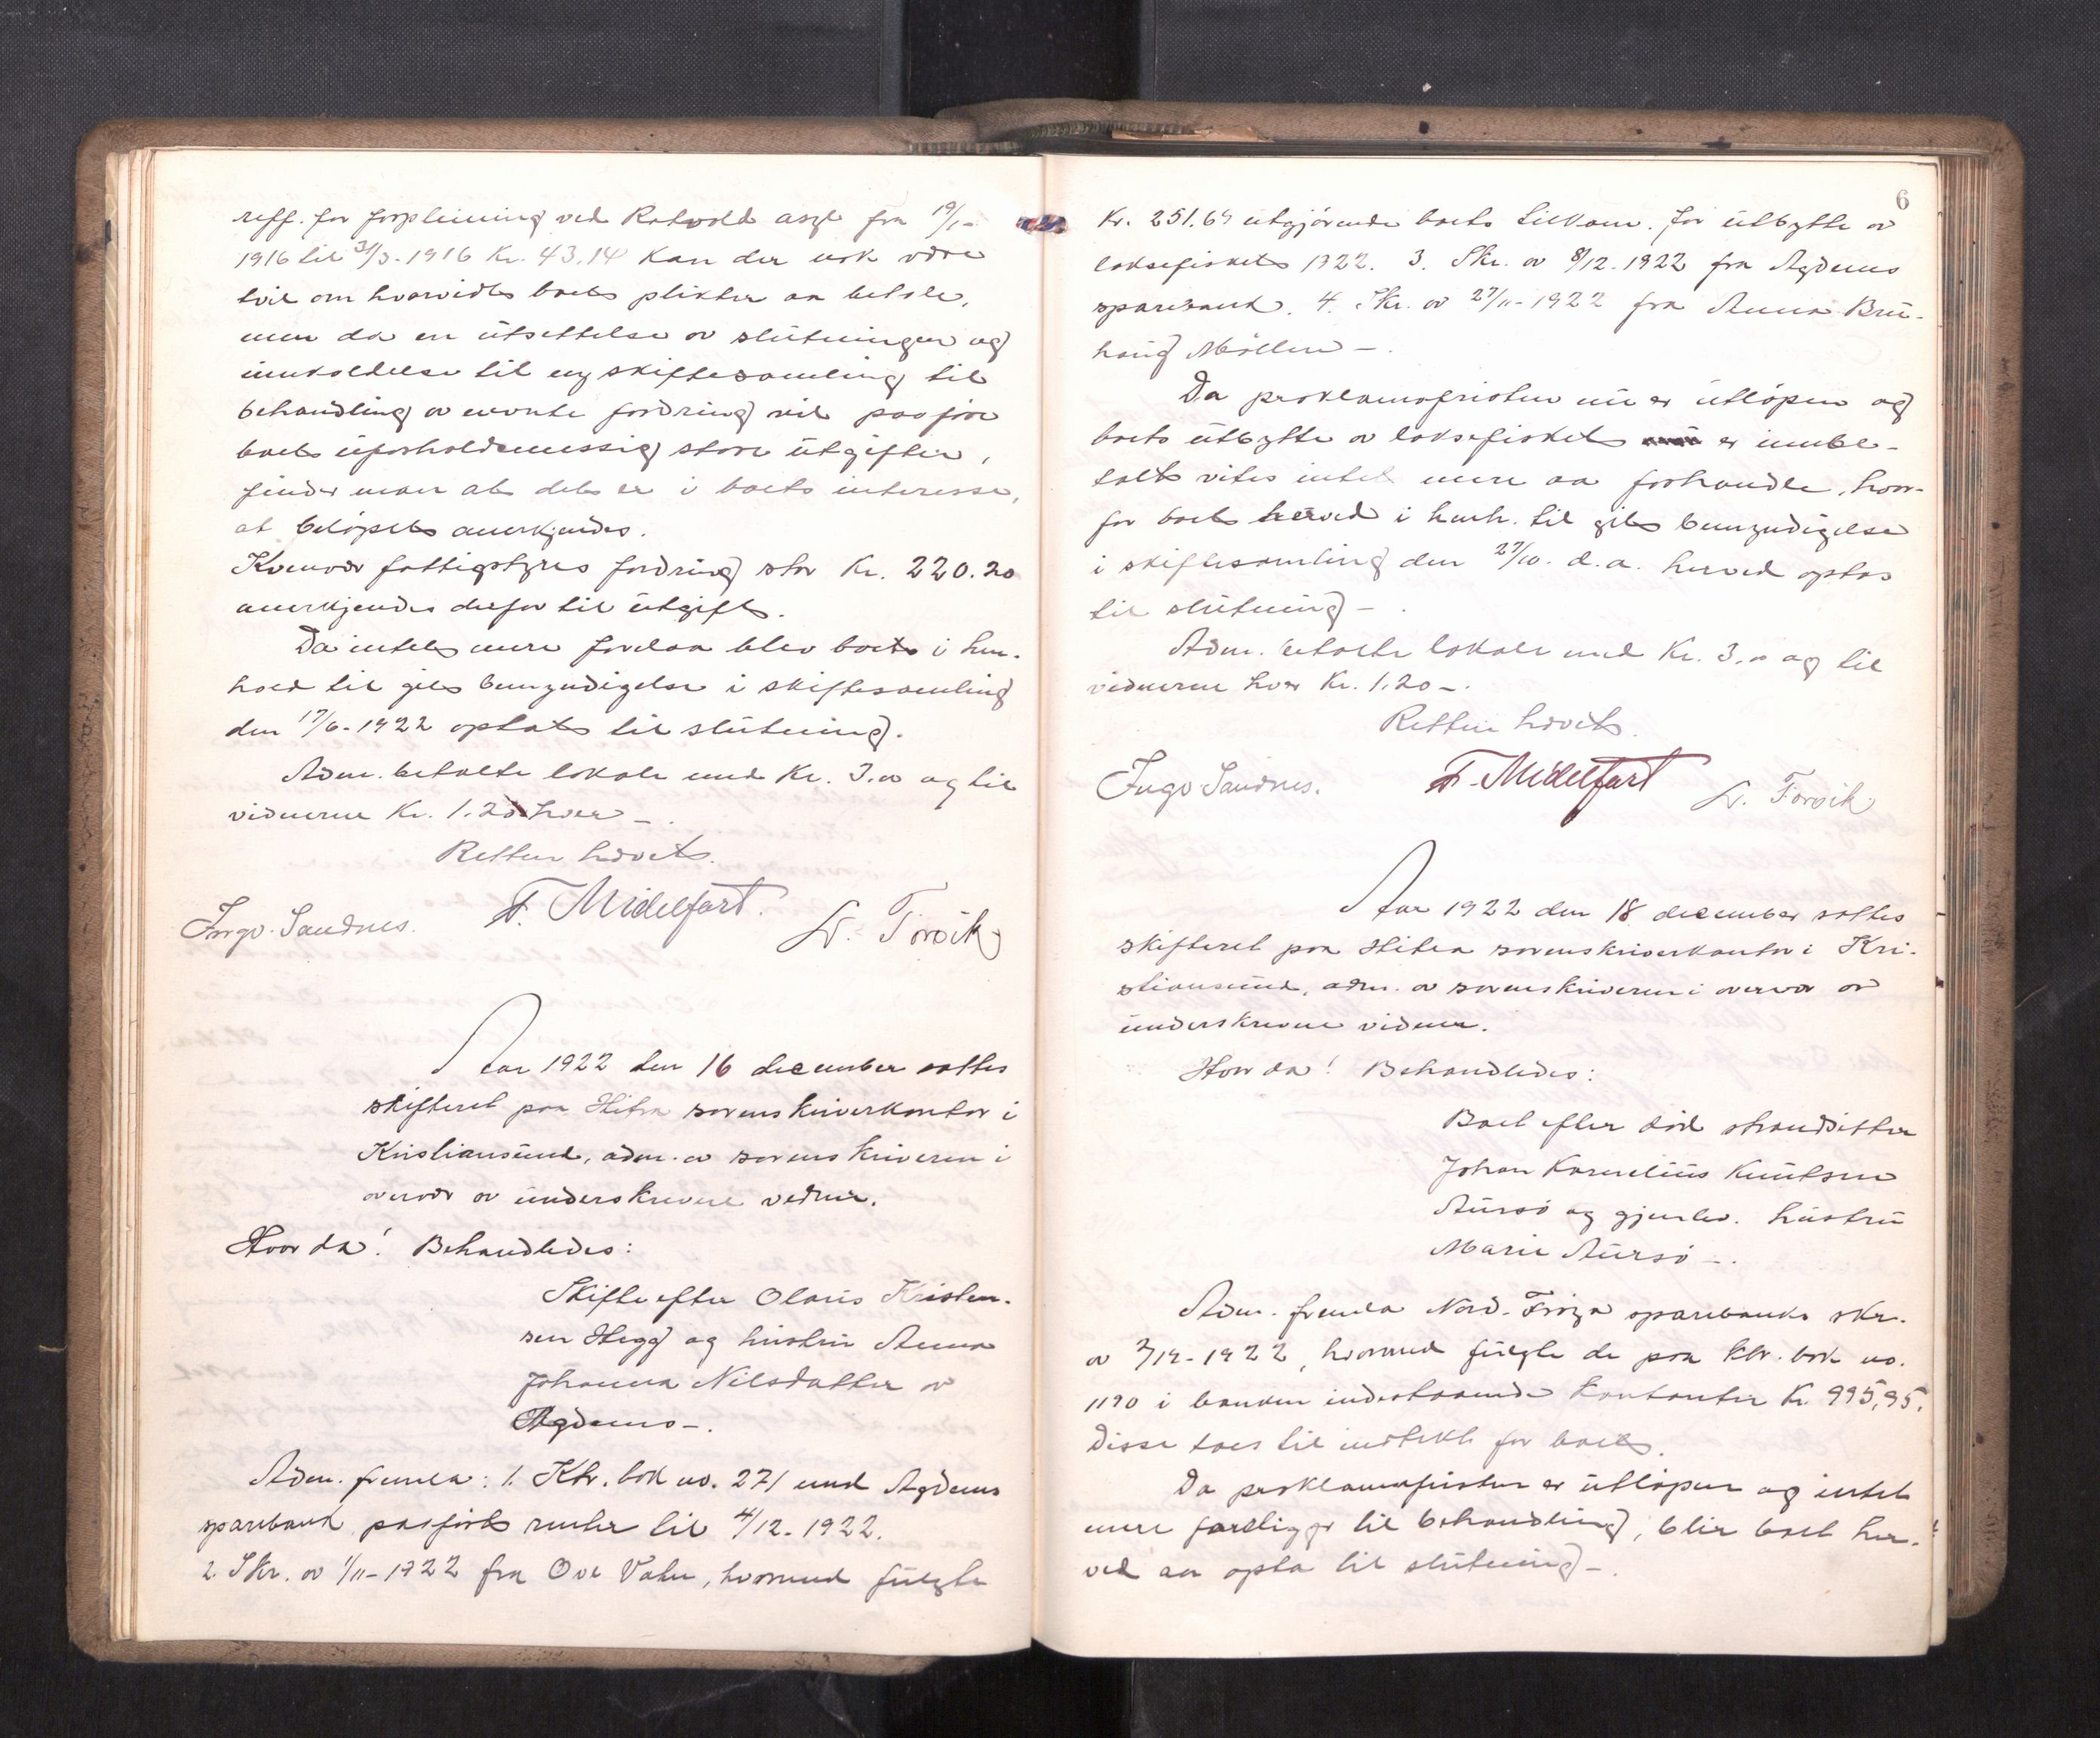 reff. for forpleining ved Rotvold asyl fra 19/1-
1916 til 31/3-1916 Kr. 43.14 kan der nok være
tvil om hvorvidt boet plikter aa betale,
men da en utsettelse av slutningen og
innkaldelse til ny skiftesamling til
behandling av nevnte fordring vil paaføre
boet uforholdsmessig store utgifter,
finder man at det er i boets interesse,
at beløpet anerkjendes.
Kvenvær fattigstyres fordring stor Kr. 220.20
anerkjendes derfor til utgift.
Da intet mere forelaa blev boet i hen-
hold til git bemyndigelse i skiftesamling
den 17/6-1922 optat til slutning.
Adm. betalte lokale med Kr. 3.00 og til
vidnerne Kr. 1.20 hver -.
Retten hævet.
Ingv. Sandnes. F. Midelfart. L. Torvik
Aar 1922 den 16 december sattes
skifteret paa Hitra sorenskriverkontor i
Kristiansund, adm. av sorenskriveren i
overvær av underskrevne vidner.
Hvor da! Behandledes:
Skifte efter Olaus Kristen-
sen Hegg og hustru Anna
Johanna Nilsdatter av
Agdenes -.
Adm. fremla: 1. Ktr. bok no. 271 med Agdenes
sparebank paaført renter til 4/12-1922.
2. Skr. av 1/11-1922 fra Ove Vaten, hvormed fulgte
6
Kr. 251.64 utgjørende boets tilkom. for utbytte av
laksefisket 1922. 3. Skr. av 8/12-1922 fra Agdenes
sparebank. 4. Skr. av 27/11-1922 fra Anna Bru-
haug Møllen -.
Da proklamafristen nu er utløpen og
boets utbytte av laksefisket er innbe-
talt vites intet mere aa forhandle, hvor-
for boet herved i henh. til git bemyndigelse
i skiftesamling den 27/10. d.a. herved optas
til slutning -.
Adm. betalte lokale med Kr. 3.00 og til
vidnerne hver Kr. 1.20 -.
Retten hævet.
Ingv Sandnes. F. Midelfart L. Torvik
Aar 1922 den 18 december sattes
skifteret paa Hitra sorenskriverkontor i Kri-
stiansund, adm. av sorenskriveren i overvær av
underskrevne vidner.
Hvor da! Behandledes:
Boet efter død strandsitter
Johan Kornelius Knutsen
Aursø og gjenlev. hustru
Marie Aursø -.
Adm. fremla Nord-Frøya sparebanks skr.
av 2/12-1922, hvormed fulgte de paa ktr. bok no.
1190 i banken indestaaende kontanter Kr. 995,95.
Disse toes til indtekt for boet.
Da proklamafristen er utløpen og intet
mere foreligger til behandling, blir boet her-
ved aa opta til slutning -.